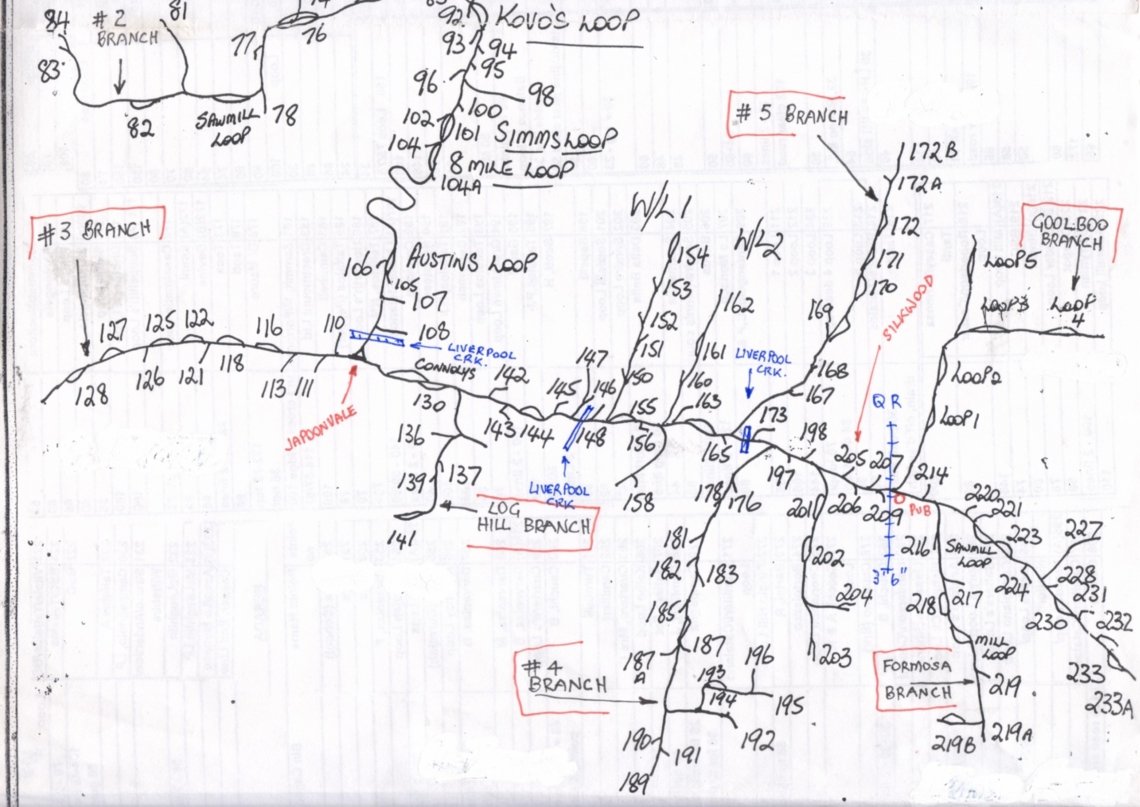 84
# 2
BRANCH
81
76
77
83
82
SAWMILL
LOOP
78
92
KOVO'S LOOP
93
94
95
96
98
100
102
101
SIMMS LOOP
104
8 MILE LOOP
104A
# 3 BRANCH
AUSTINS LOOP
106
105
107
108
LIVERPOOL
CRK.
110
127
125
122
116
128
126
121
118
113
111
JAPOONVALE
CONNOLYS
130
136
137
139
141
LOG
HILL BRANCH
142
143
144
145
147
146
148
LIVERPOOL
CRK
W/L1
154
153
152
151
150
155
156
158
W/L2
162
161
160
163
165
LIVERPOOL
CRK.
# 5 BRANCH
172B
172A
172
171
170
169
168
167
173
SILKWOOD
GOOLBOO
BRANCH
LOOP 5
LOOP 3
LOOP
4
LOOP 2
LOOP 1
Q R
198
197
205
207
206
209
PUB
214
3" 6"
178
176
181
182
183
185
187
187
A
# 4
BRANCH
193
194
196
195
192
190
191
189
201
202
204
203
216
217
218
MILL
LOOP
FORMOSA
BRANCH
219
219A
219B
220
221
223
SAWMILL
LOOP
224
227
228
231
230
232
233
233A